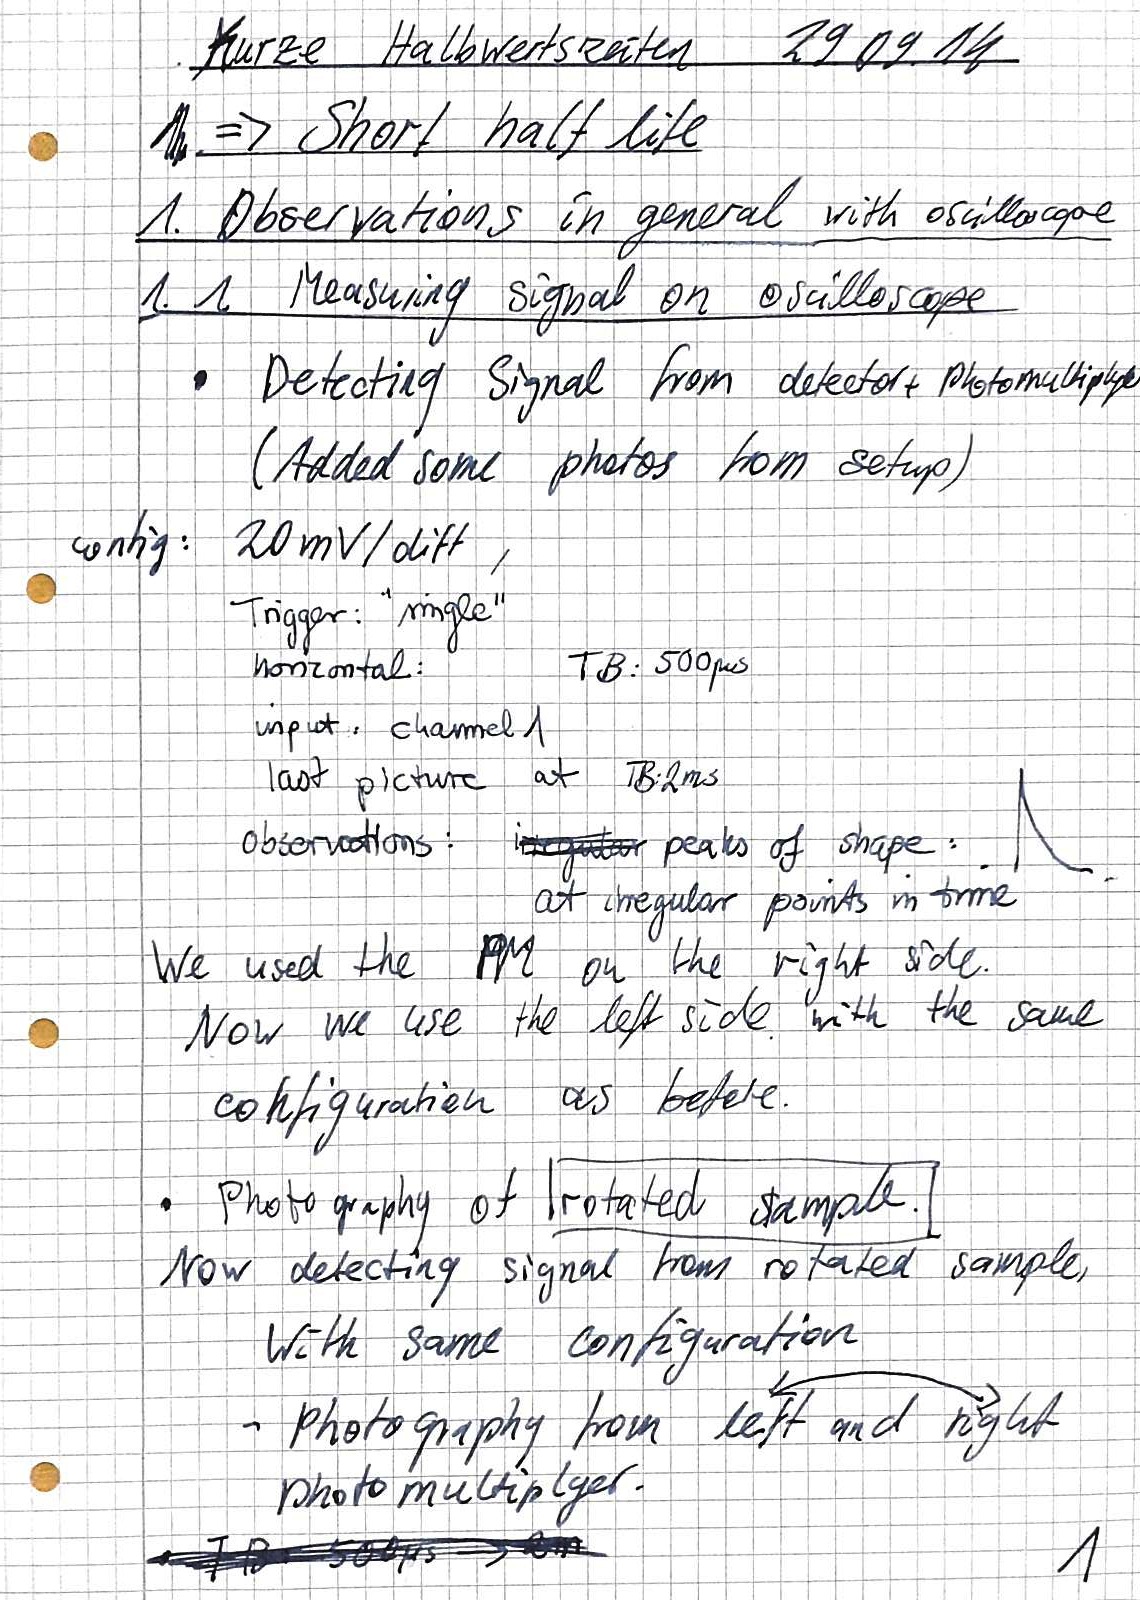 Kurze Halbwertszeiten 29.09.14
=> Short half life
1. Observations in general with oscilloscope
1.1 Measuring signal on oscilloscope
• Detecting Signal from detector + Photomultiplyer
(Added some photos from setup)
config: 20mV/diff,
Trigger: "single"
horizontal: TB: 500µs
input: channel 1
last picture at TB:2ms
observations: irregular peaks of shape:
at irregular points in time
We used the PM on the right side.
Now we use the left side with the same
configuration as before.
• Photography of rotated sample.
Now detecting signal from rotated sample,
With same configuration
- Photography from left and right
photomultiplyer.
• TB: 500µs -> 2m
1